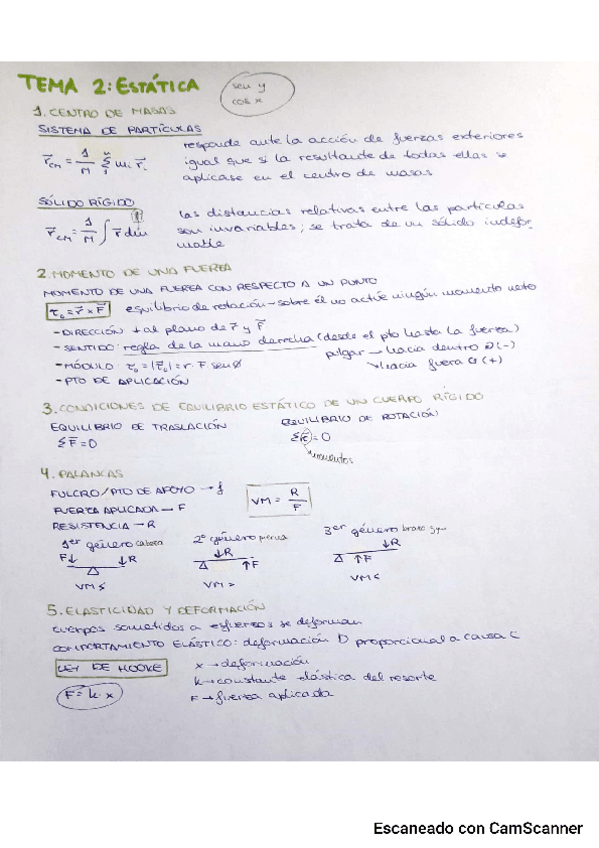 TEMA 2: ESTÁTICA
sen y
cos x
1. CENTRO DE MASAS
SISTEMA DE PARTÍCULAS
r⃗cm = 1/M Σ mᵢ r⃗ᵢ
responde ante la acción de fuerzas exteriores
igual que si la resultante de todas ellas se
aplicase en el centro de masas
SÓLIDO RÍGIDO
r⃗cm = 1/M ∫ r⃗ dm
las distancias relativas entre las partículas
son invariables; se trata de un sólido indefor
mable
2. MOMENTO DE UNA FUERZA
MOMENTO DE UNA FUERZA CON RESPECTO A UN PUNTO
τ⃗₀ = r⃗ x F⃗ equilibrio de rotación - sobre él no actúe ningún momento neto
- DIRECCIÓN ⊥ al plano de r⃗ y F⃗
- SENTIDO: regla de la mano derecha (desde el pto hasta la fuerza)
pulgar → hacia dentro (-)
hacia fuera (+)
- MÓDULO: τ₀ = |τ⃗₀| = r · F senθ
- PTO DE APLICACIÓN
3. CONDICIONES DE EQUILIBRIO ESTÁTICO DE UN CUERPO RÍGIDO
EQUILIBRIO DE TRASLACIÓN
ΣF⃗ = 0
EQUILIBRIO DE ROTACIÓN
Στ⃗ = 0
momentos
4. PALANCAS
FULCRO/PTO DE APOYO → f
FUERZA APLICADA → F
RESISTENCIA → R
VM = R/F
1er género cabeza
F↓ ↓R
VM ≤
2º género pierna
↓R
↑F
VM >
3er género brazo
↓R
↑F
VM <
5. ELASTICIDAD Y DEFORMACIÓN
cuerpos sometidos a esfuerzos se deforman
COMPORTAMIENTO ELÁSTICO: deformación D proporcional a causa C
LEY DE HOOKE
F = k · x
x → deformación
k → constante elástica del resorte
F → fuerza aplicada
Escaneado con CamScanner